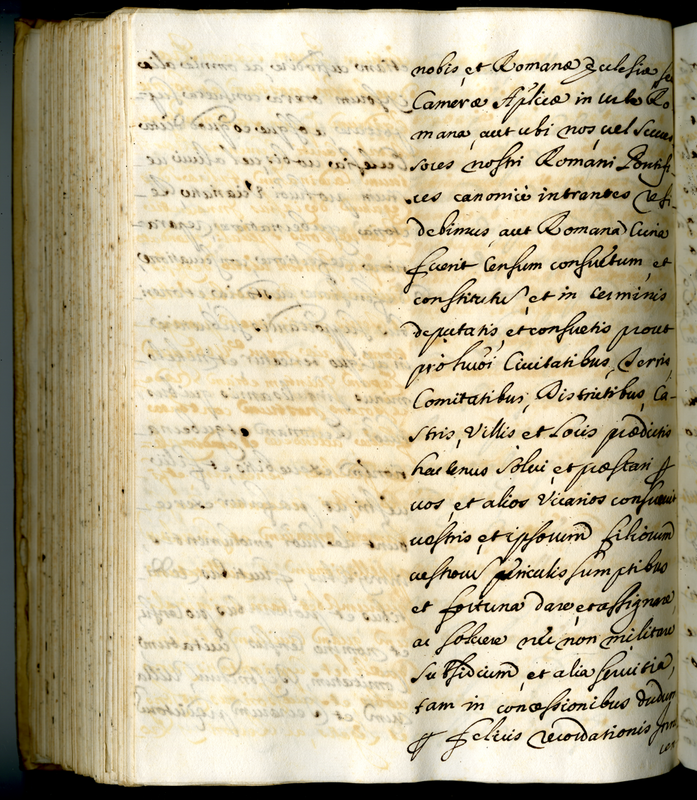 nobis, et Romanæ Ecclesiæ, se
Cameræ Aplicæ in Urbe Ro
mana, aut ubi nos, vel Succes
sores nostri Romani Pontifi-
ces canonicè intrantes resi-
debimus, aut Romana Curia
fuerit Censum consuetum, et
constitutũ, et in terminis
deputatis, et consuetis prout
pro huiõi Civitatibus, Terris,
Comitatibus, Districtibus, Ca-
stris, Villis et Locis prædictis
hactenus solvi, et præstari p
vos, et alios Vicarios consuevit
vestris, et ipsorum filiorum
vestrorũ periculis sumptibus
et fortuna dare, et assignare,
ac solvere nec non militare
Subsidium, et alia servitia,
tam in concessionibus dudum
p felicis recordationis